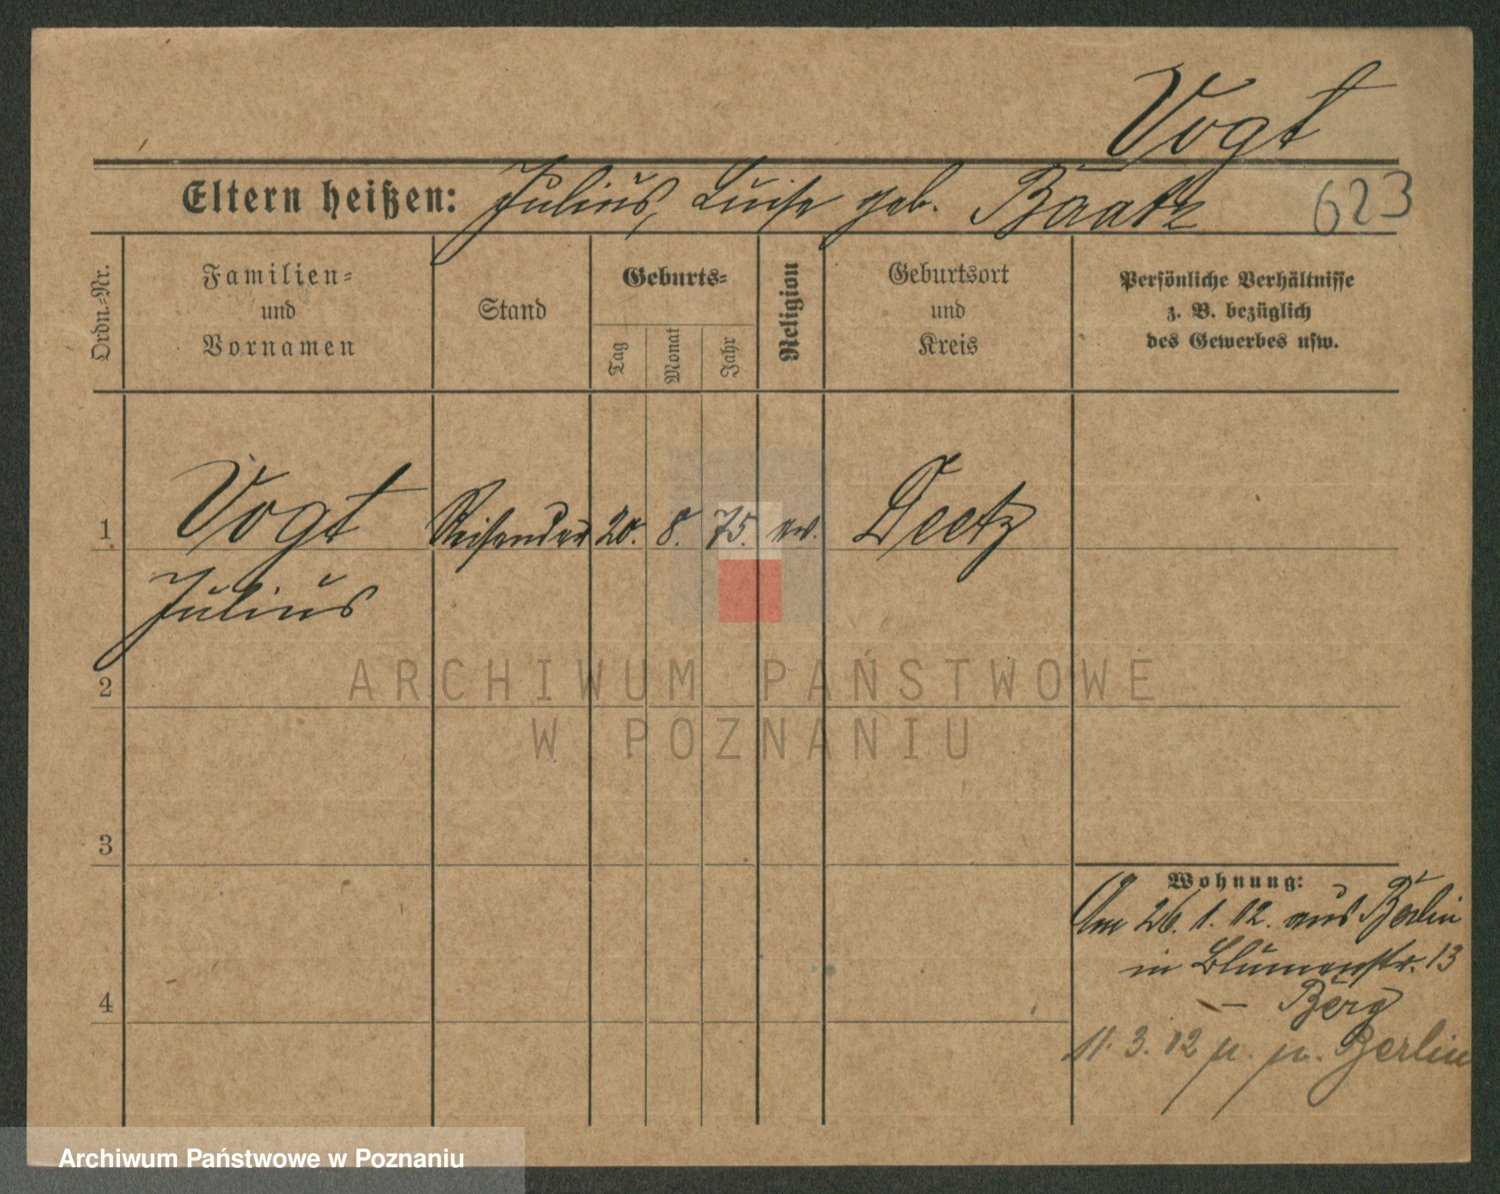 Vogt
Eltern heißen: Julius, Luise geb. Baatz
623
Ordn.=Nr.
Familien=
und
Vornamen
Stand
Geburts=
Tag
Monat
Jahr
Religion
Geburtsort
und
Kreis
Persönliche Verhältnisse
z. B. bezüglich
des Gewerbes usw.
1 Vogt Reisender 20. 8. 75. ev. Deetz
Julius
2
ARCHIWUM PAŃSTWOWE
W POZNANIU
3
Wohnung:
Am 26. 1. 12. aus Berlin
in Blumenstr. 13
– Berg
4
11. 3. 12 Berlin
Archiwum Państwowe w Poznaniu